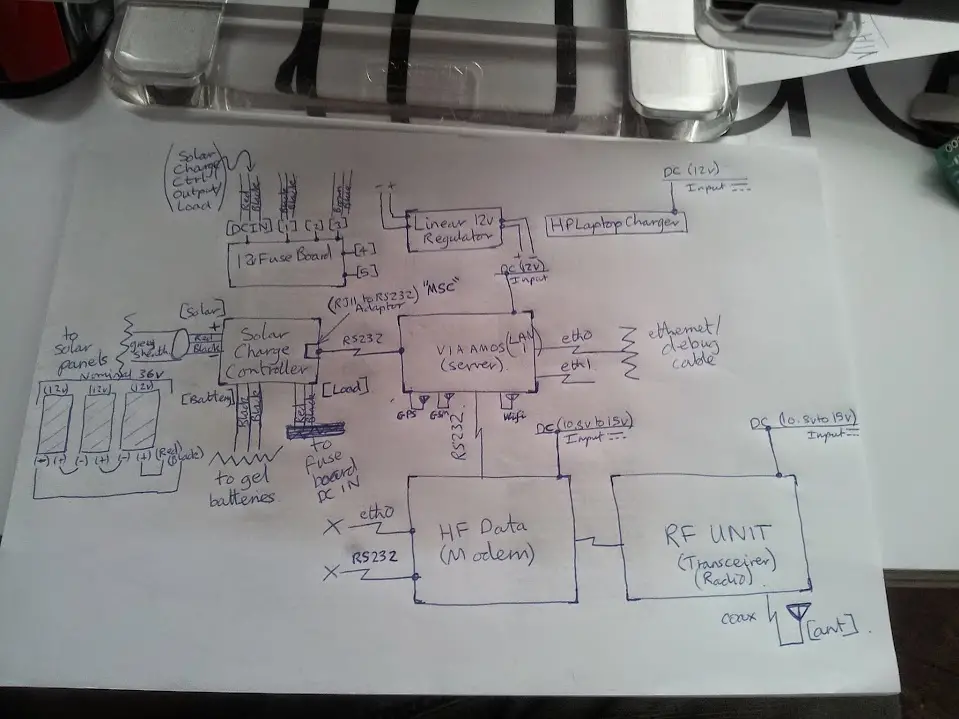 (Solar
Charge
Ctrl
Output/
Load)
Red
Black
Black
Brown
Blue
[DC IN] [1] [2] [3]
Fuse Board
[4]
[5]
- +
Linear 12v
Regulator
+ -
DC (12v)
Input
HP Laptop Charger
DC (12v)
Input
[Solar]
+
-
Red
Black
grey
sheath
to
solar
panels
Nominal 36v
(12v) (12v) (12v)
(-) (+) (-) (+) (-) (+)
(Red)
(Black)
Solar
Charge
Controller
(RJ11 to RS232) "MSC"
Adaptor
RS232
[Battery]
Black
Black
to gel
batteries
[Load]
Red
Black
to
fuse
board
DC IN
VIA AMOS
(server)
(LAN)
1
eth0
eth1
ethernet/
debug
cable
GPS
GSM
Wifi
RS232
DC (10.8v to 15v)
Input
HF Data
(Modem)
X eth0
X RS232
DC (10.8v to 15v)
Input
RF UNIT
(Transceiver)
(Radio)
coax
[ant].